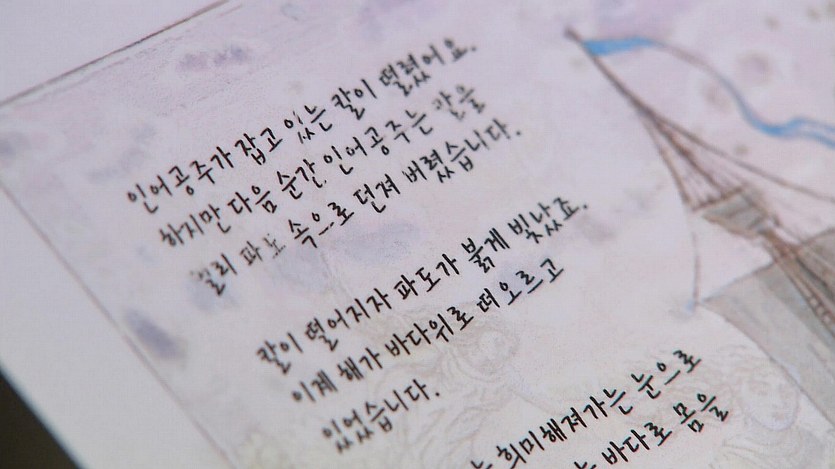 인어공주가 잡고 있는 칼이 떨렸어요.
하지만 다음 순간, 인어공주는 칼을
멀리 파도 속으로 던져 버렸습니다.
칼이 떨어지자 파도가 붉게 빛났죠.
이제 해가 바다위로 떠오르고
있었습니다.
는 희미해져가는 눈으로
바다로 몸을